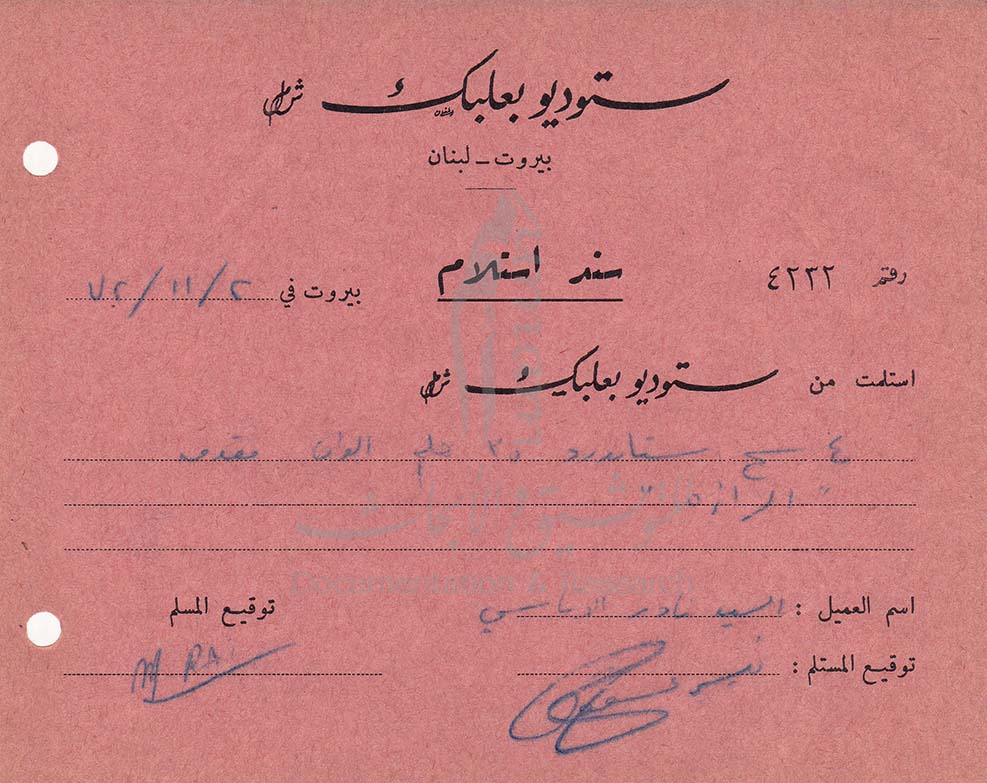 ستوديو بعلبك ش م ل
بيروت - لبنان
رقم ٤٢٣٢
سند استلام
بيروت في ٢ / ١١ / ٧٢
استلمت من ستوديو بعلبك ش م ل
٤ نسخ ستاندرد ٣ فلم الوان
اسم العميل : السيد نادر الاتاسي
توقيع المسلم
توقيع المستلم :
M RAI
Documentation & Research